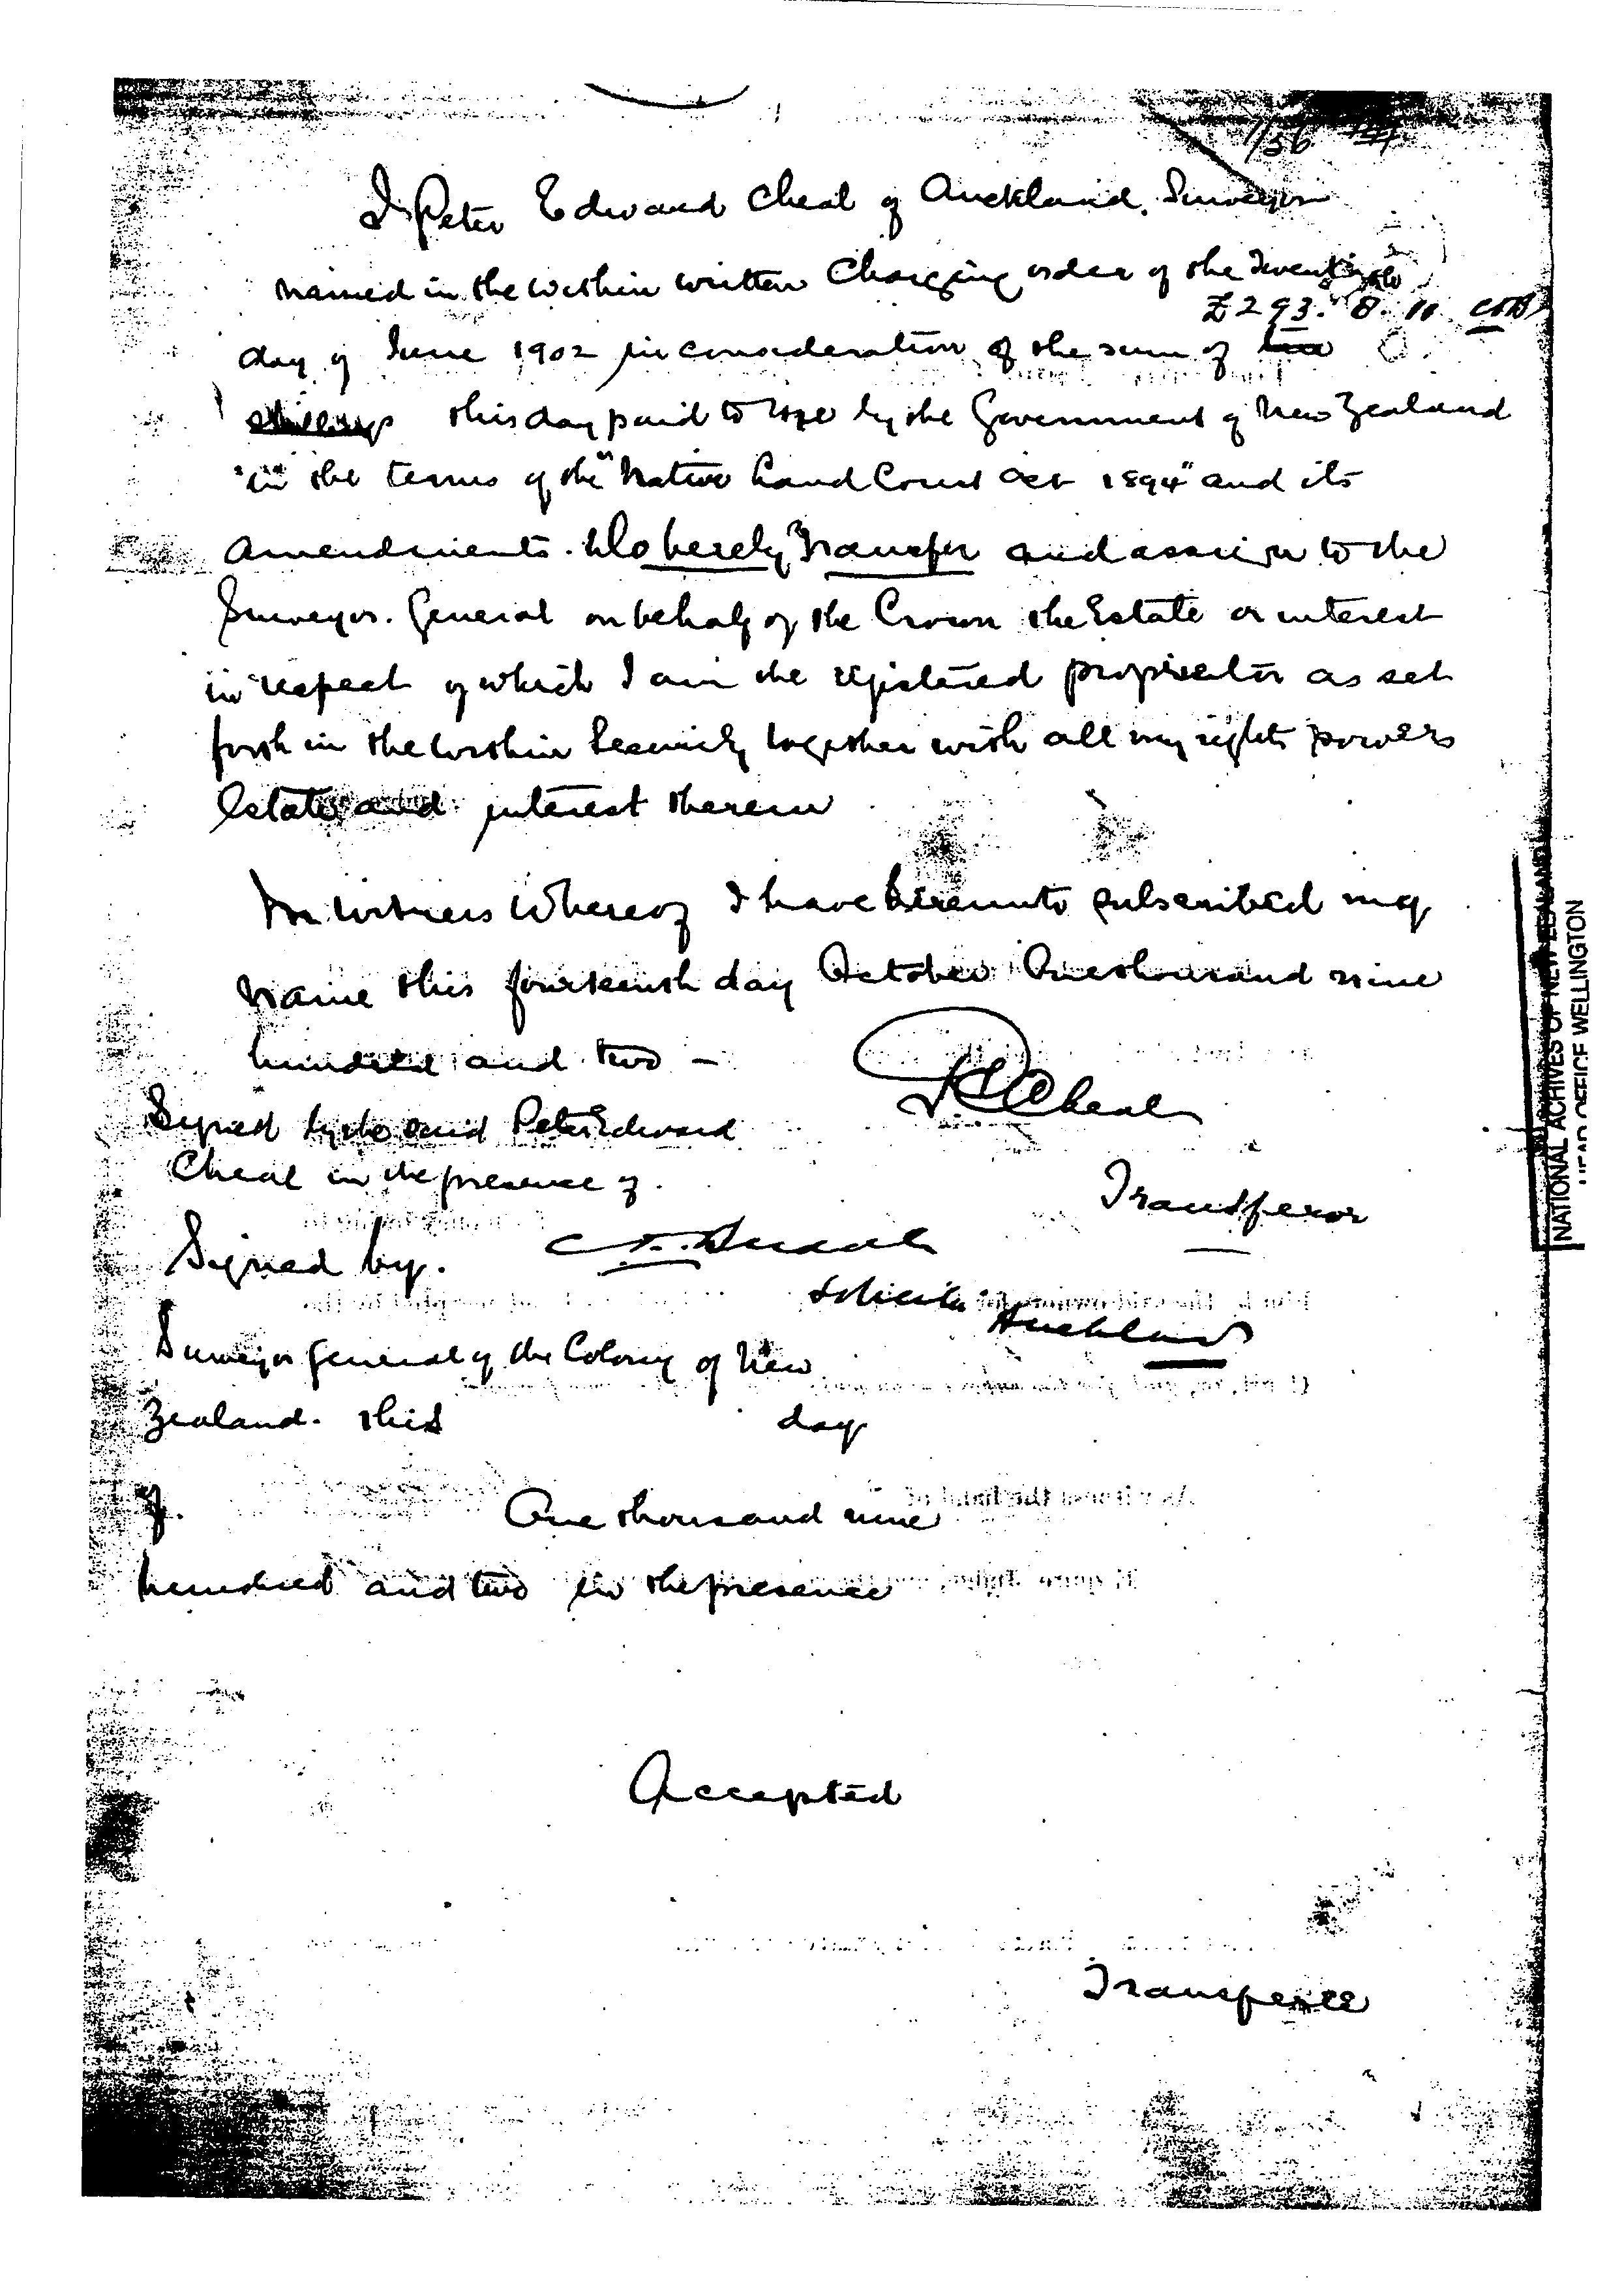 1/56
I Peter Edward Cheal of Auckland, Surveyor
named in the within written Charging order of the Twentieth
£293. 8. 11
day of June 1902 in consideration of the sum of ten
shillings this day paid to me by the Government of New Zealand
in the terms of the "Native Land Court Act 1894" and its
Amendments. Do hereby Transfer and assign to the
Surveyor. General on behalf of the Crown the Estate or interest
in respect of which I am the registered proprietor as set
forth in the within Security together with all my rights powers
Estate and interest therein
In witness Whereof I have hereunto subscribed my
Name this fourteenth day October One thousand nine
hundred and two -
P E Cheal
Signed by the said Peter Edward
Cheal in the presence of.
Transferor
Signed by.
Solicitor
Auckland
Surveyor General of the Colony of New
Zealand. this day
of. One thousand nine
hundred and two in the presence
Accepted
Transferee
NATIONAL ARCHIVES OF NEW ZEALAND
HEAD OFFICE WELLINGTON